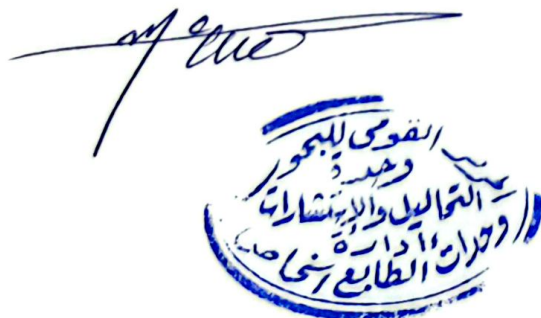 القومى للبحوث
وحدة
التحاليل والإستشارات
إدارة
وحدات الطابع الخاص